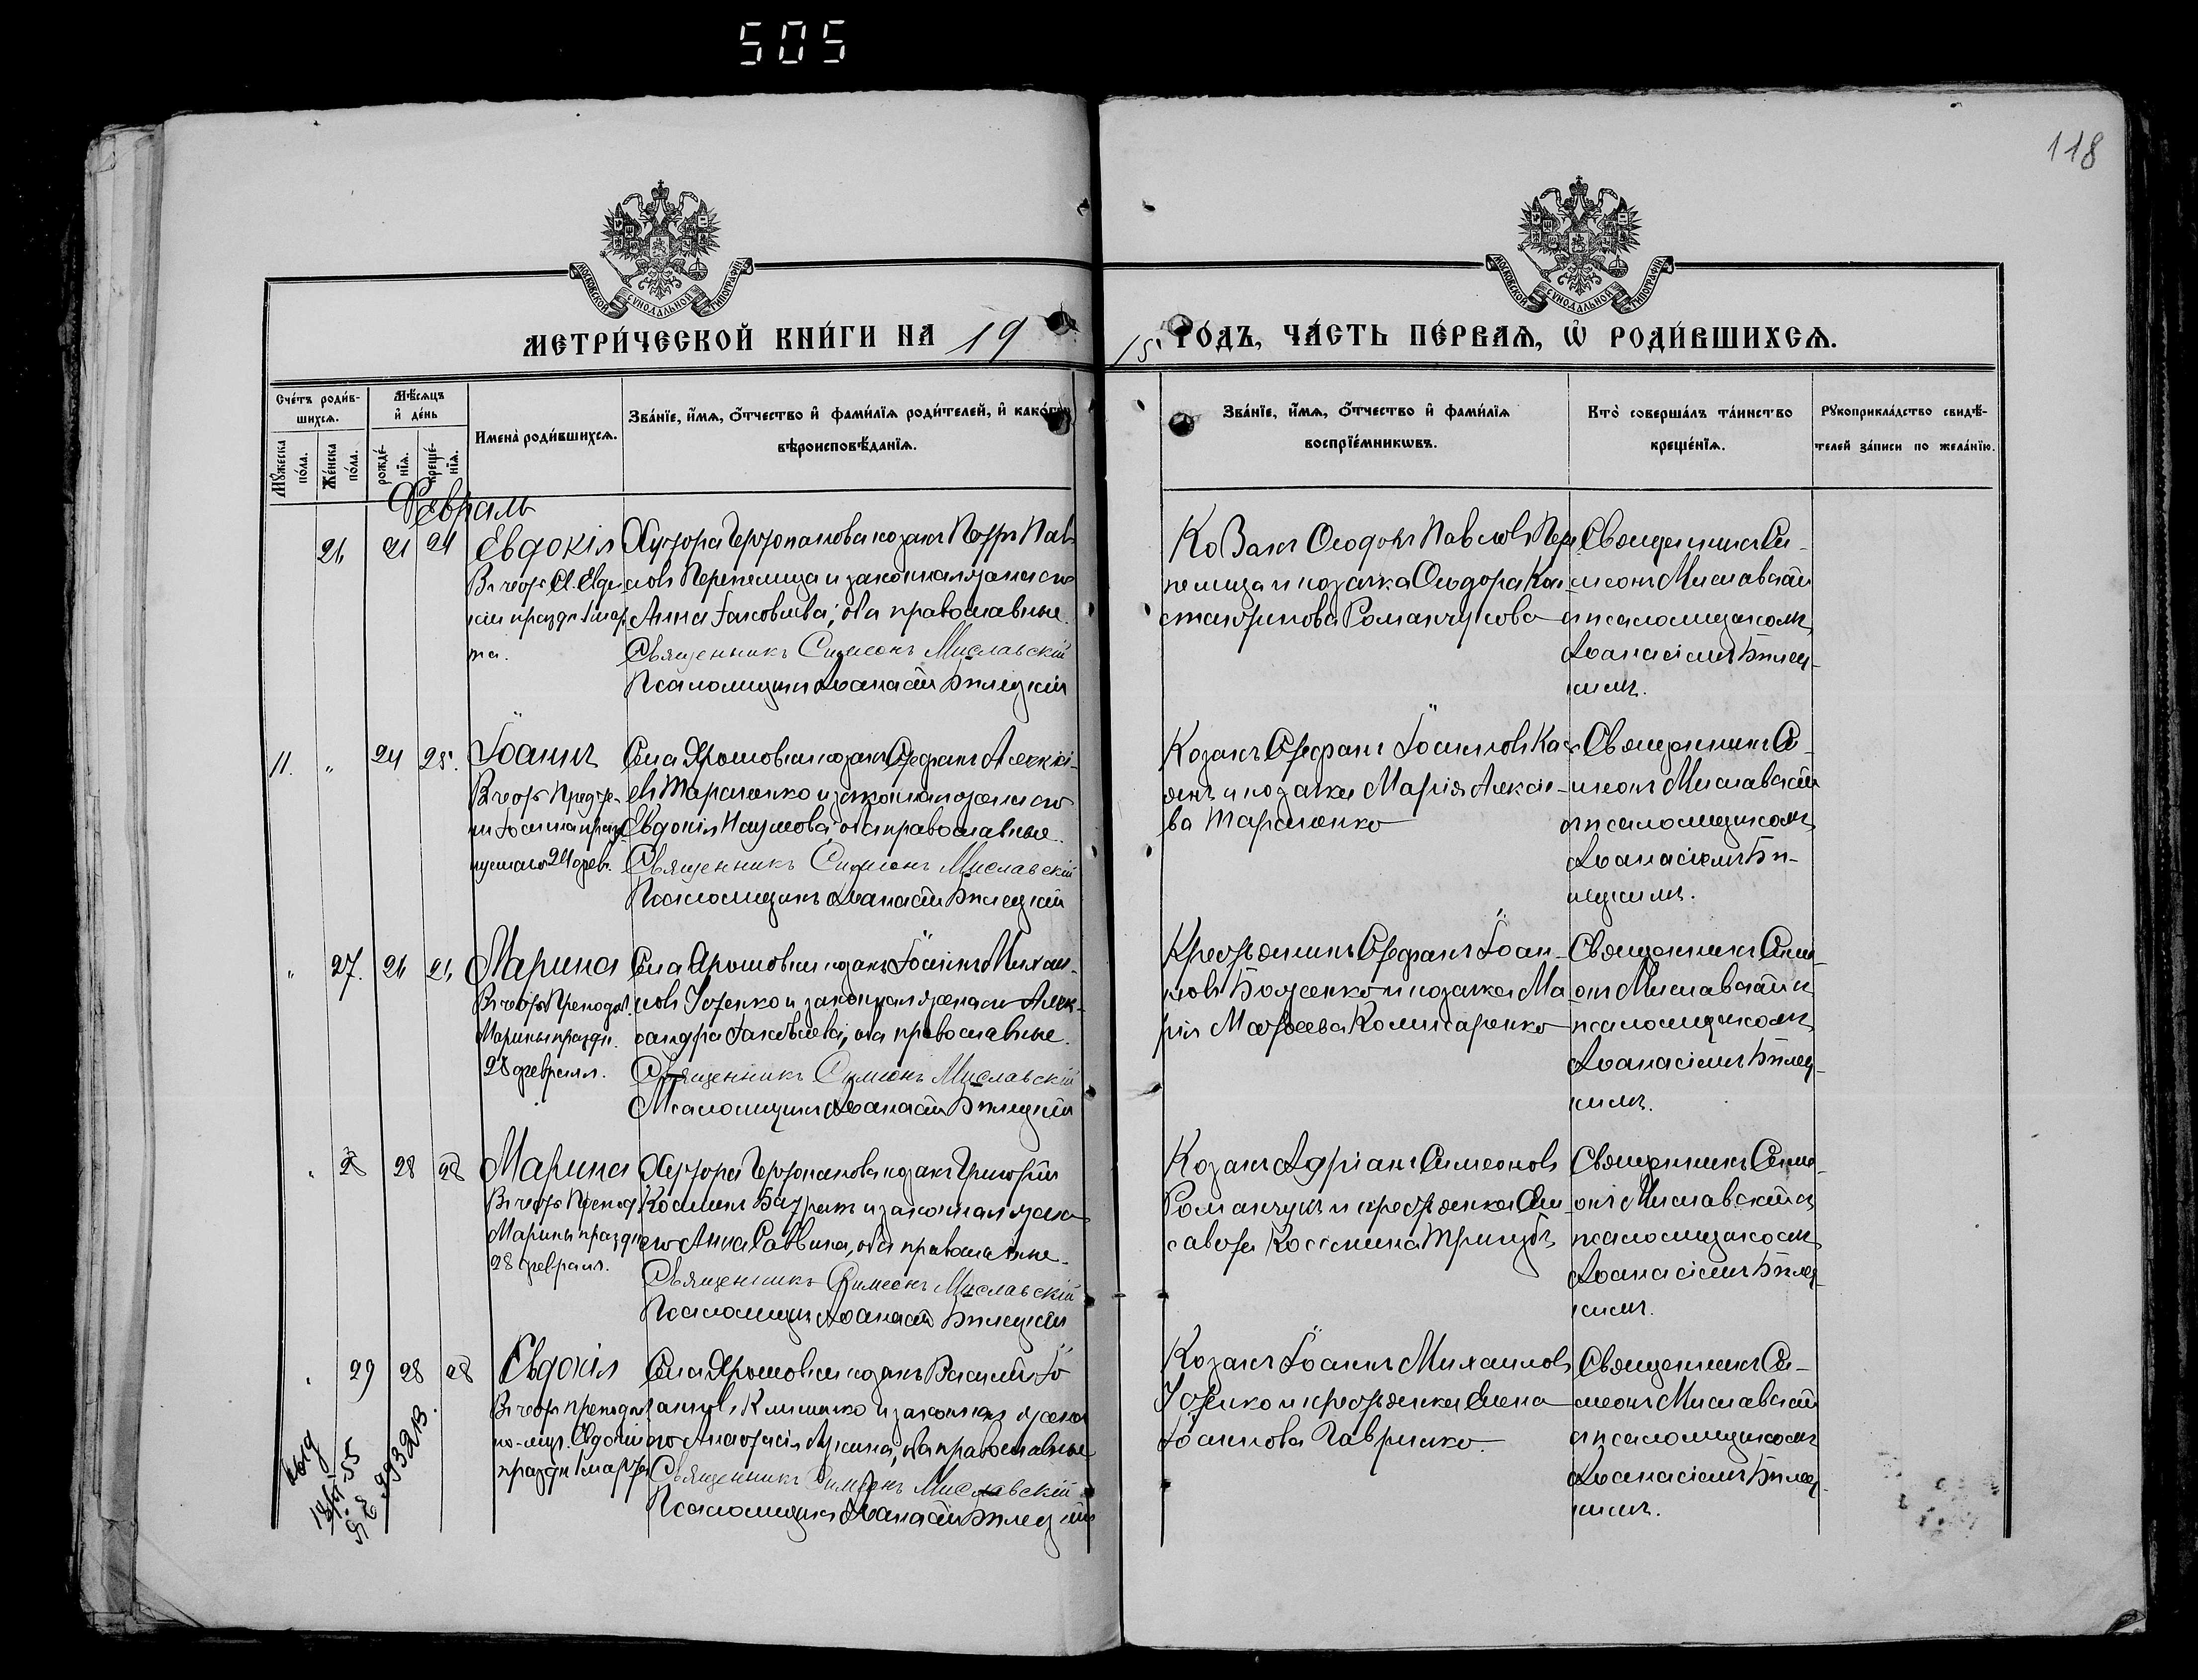 505
118
МОСКОВСКОЙ СѴНОДАЛЬНОЙ ТИПОГРАФІИ
МОСКОВСКОЙ СѴНОДАЛЬНОЙ ТИПОГРАФІИ
МЕТРИ́ЧЕСКОЙ КНИ́ГИ НА 19
15 ГО́ДЪ, ЧА́СТЬ ПЕ́РВАѦ, Ѡ҆ РОДИ́ВШИХСѦ.
Сче́тъ роди́в-
шихсѧ.
Мꙋ́жеска
по́ла.
Же́нска
по́ла.
Мѣ́сѧцъ
и҆ де́нь
рожде́-
нїѧ.
креще́-
нїѧ.
Имена̀ роди́вшихсѧ.
Зва́нїе, и҆́мѧ, ѻ҆́тчество и҆ фами́лїѧ роди́телей, и҆ како́гѡ
вѣроисповѣ́данїѧ.
Зва́нїе, и҆́мѧ, ѻ҆́тчество и҆ фами́лїѧ
воспрїе́мникѡвъ.
Кто̀ соверша́лъ та́инство
креще́нїѧ.
Рꙋкоприкла́дство свидѣ́-
телей за́писи по жела́нїю.
Февраль
21 24
Евдокія
Въ честь Св. Евдо-
кіи праздн. 1 мар
та.
Хутора козакъ Петръ Пав
ловъ Перепелица и законная жена его
Анна Іаковлева, оба православные.
Священникъ Симеонъ Миславскій
Псаломщикъ Аѳанасій Бѣлецкій
Козакъ Ѳеодотъ Павловъ Пере
пелица и козачка Ѳеодора Кон-
стантинова Романчукова
Священникъ Си-
меонъ Миславскій
съ псаломщикомъ
Аѳанасіемъ Бѣлец-
кимъ.
11. „ 24 25.
Іоаннъ
Въ честь Предте-
чи Іоанна празд
24 фев.
Села Ярошовки козакъ Стефанъ Алексі-
евъ Тарасенко и законная жена его
Евдокія Наумова, оба православные.
Священникъ Симеонъ Миславскій
Псаломщикъ Аѳанасій Бѣлецкій
Козакъ Стефанъ Іоанновъ
и козачка Марія Алексіе-
ва Тарасенко
Священникъ Си-
меонъ Миславскій
съ псаломщикомъ
Аѳанасіемъ Бѣ-
лецкимъ.
„ 27.
Марина
Въ честь Преподоб.
Марины праздн.
28 февраля.
Села Ярошовки козакъ Іоаннъ Михаи-
ловъ Усенко и законная жена его Алек-
сандра Іаковлева, оба православные.
Священникъ Симеонъ Миславскій
Псаломщикъ Аѳанасій Бѣлецкій
Крестьянинъ Стефанъ Іоан-
новъ Боженко и козачка Ма
рія Матѳеева Комисаренко
Священникъ Симе-
онъ Миславскій съ
псаломщикомъ
Аѳанасіемъ Бѣлец-
кимъ.
„ 28 28 28
Марина
Въ честь Препод.
Марины праздн
28 февраля.
Хутора козакъ Григорій
Косминъ и законная жена
его Анна Саввина, оба православные.
Священникъ Симеонъ Миславскій
Псаломщикъ Аѳанасій Бѣлецкій
Козакъ Адріанъ Симеоновъ
Романчукъ и крестьянка Ели
савета Космина Тригубъ
Священникъ Симе-
онъ Миславскій съ
псаломщикомъ
Аѳанасіемъ Бѣлец-
кимъ.
„ 29 28 28
Евдокія
Въ честь преподоб
но-муч. Евдокіи
праздн 1 марта
Села Ярошовки козакъ Василій Іо
анновъ Клименко и законная жена
его Анастасія Лукина, оба православные
Священникъ Симеонъ Миславскій
Псаломщикъ Аѳанасій Бѣлецкій
Козакъ Іоаннъ Михаиловъ
Усенко и крестьянка Елена
Іоаннова Гавриленко.
Священникъ Си-
меонъ Миславскій
съ псаломщикомъ
Аѳанасіемъ Бѣлец-
кимъ.